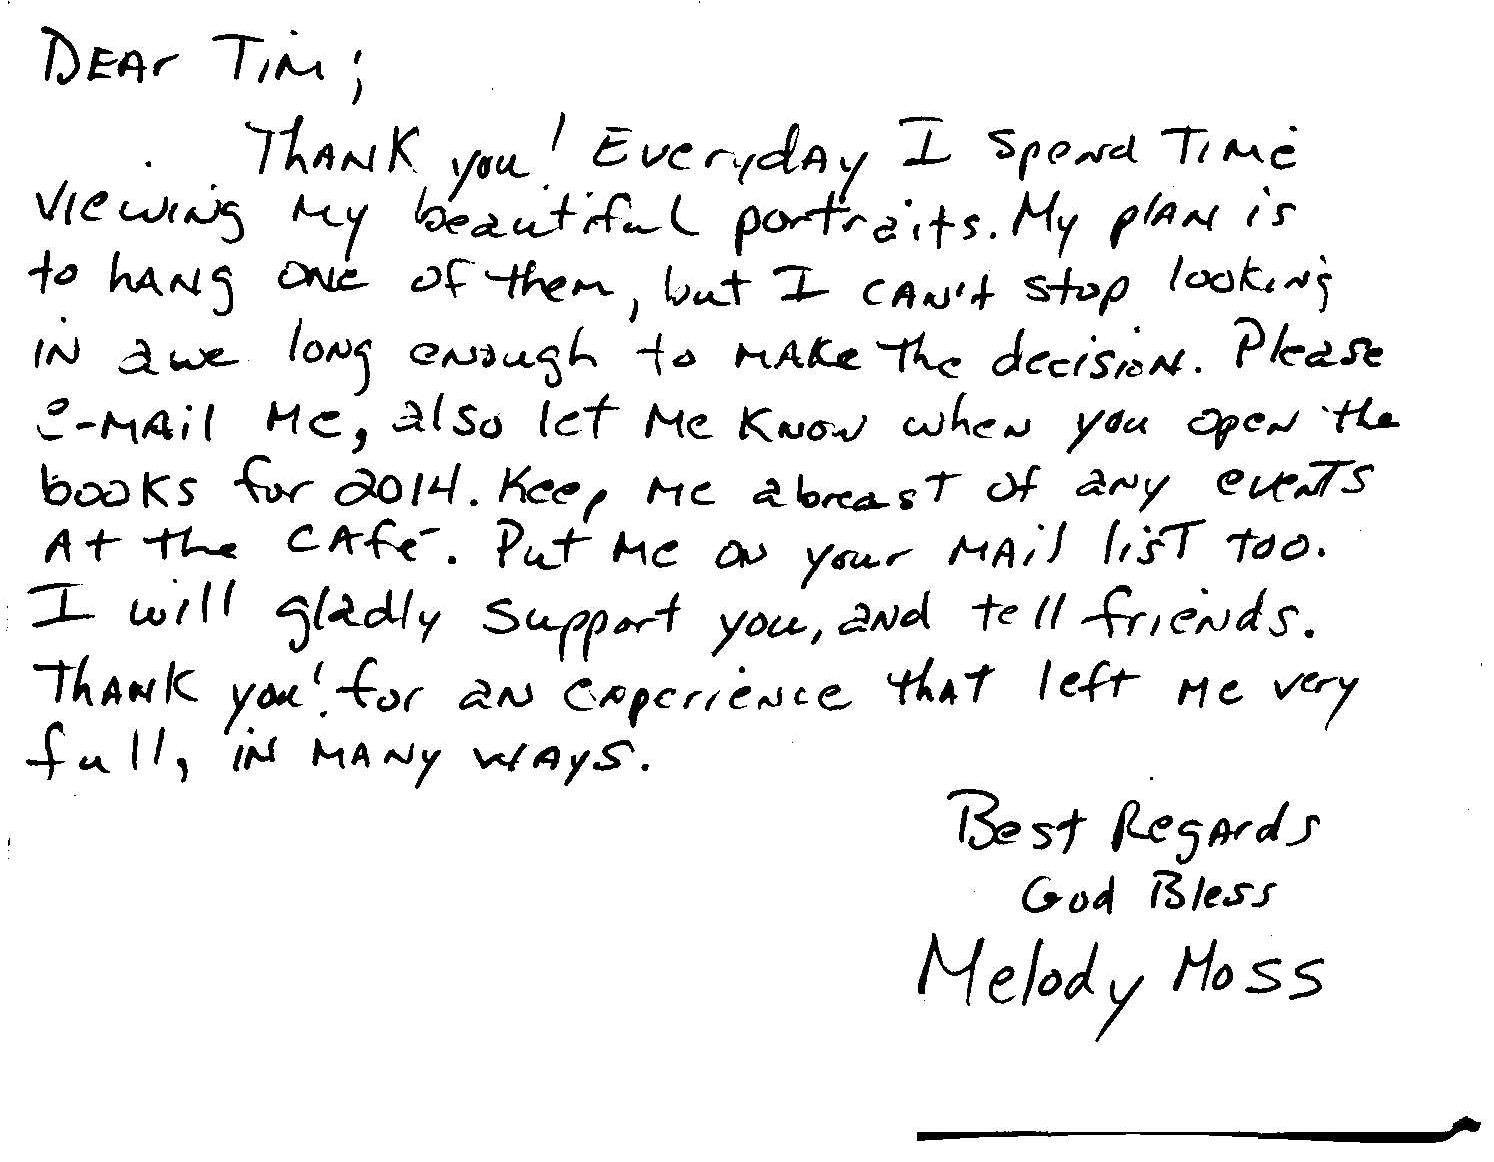 Dear Tim;
Thank you! Everyday I spend time
viewing my beautiful portraits. My plan is
to hang one of them, but I can't stop looking
in awe long enough to make the decision. Please
e-mail me, also let me know when you open the
books for 2014. Keep me abreast of any events
at the café. Put me on your mail list too.
I will gladly support you, and tell friends.
Thank you! for an experience that left me very
full, in many ways.
Best Regards
God Bless
Melody Moss